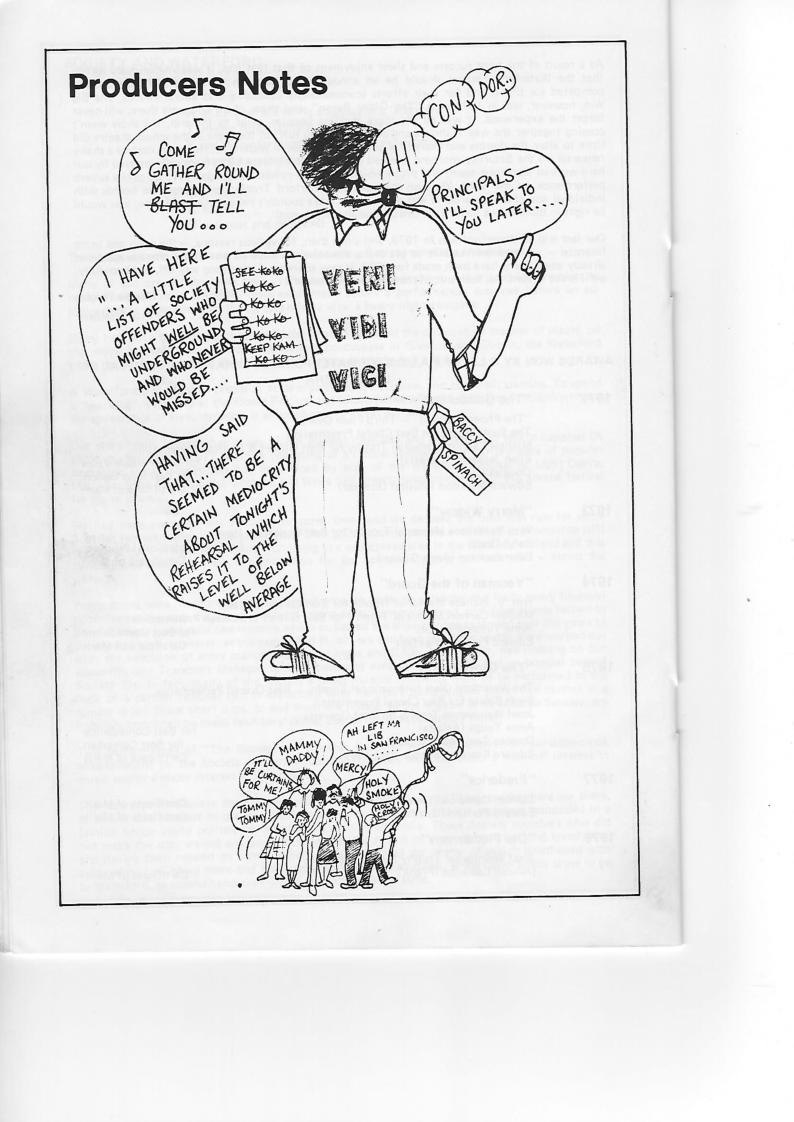 Producers Notes
COME
GATHER ROUND
ME AND I'LL
BLAST TELL
YOU...
AH! CON DOR..
PRINCIPALS—
I'LL SPEAK TO
YOU LATER....
I HAVE HERE
"...A LITTLE
LIST OF SOCIETY
OFFENDERS WHO
MIGHT WELL BE
UNDERGROUND
AND WHO NEVER
WOULD BE
MISSED....
SEE KOKO
KO KO
KO KO
KO KO
KO KO
KEEP KAM
KO KO
VENI
VIDI
VICI
BACCY
SPINACH
HAVING SAID
THAT...THERE
SEEMED TO BE A
CERTAIN MEDIOCRITY
ABOUT TONIGHT'S
REHEARSAL WHICH
RAISES IT TO THE
LEVEL OF
WELL BELOW
AVERAGE
AH LEFT MA
LIB
IN SAN FRANCISCO
......
MAMMY
DADDY!
IT'LL
BE CURTAINS
FOR ME!
MERCY!
HOLY
SMOKE
TOMMY
TOMMY!
HOLY
CROSS!